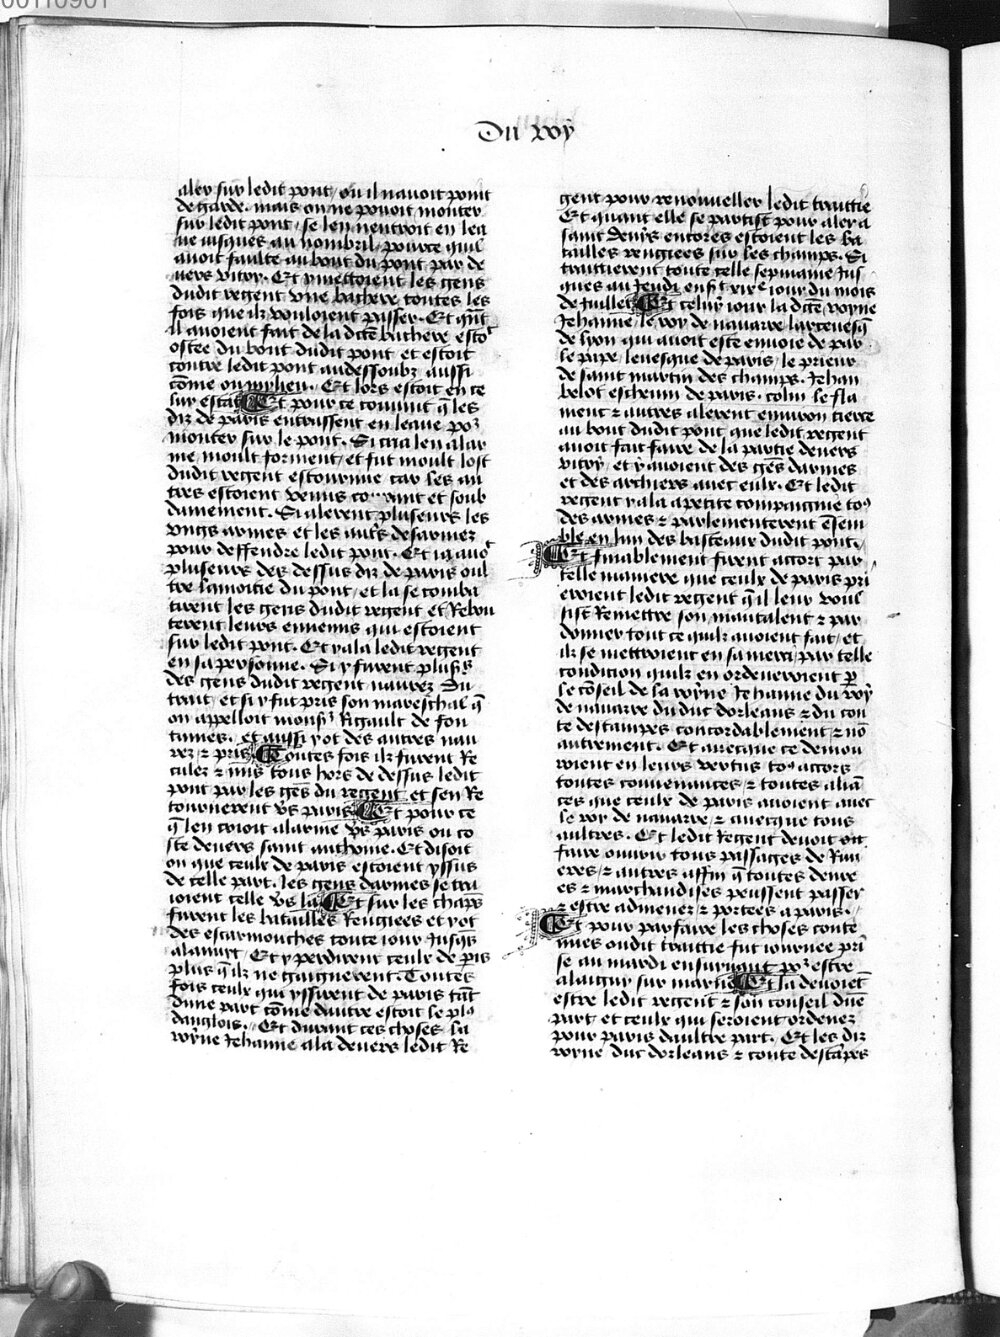 00110901
Du roy
aler sur ledit pont / ou il nauoit point
de garde. mais on ne pouoit monter
sur ledit pont / se len nentroit en lea
ue iusques au nombril / pource quil
auoit faulte au bout du pont par de
uers vitry. Et y mettoient les gens
dudit regent vne bachere toutes les
fois que ilz vouloient passer. Et qnt
il auoient fait de la dcte bachere esto
ostee du bout dudit pont et estoit
contre ledit pont audessoubz aussi
cõme ou mylieu. Et lors estoit en ce
sur estat Et pour ce conuint q̃ les
diz de paris entrassent en leaue poz
monter sur le pont. Si cria len alar
me moult forment / et fut moult lost
dudit regent estourmie car les au
tres estoient venus co rant et soub
dainement. Si alerent plusieurs les
vngs armes et les autrs desarmez
pour deffendre ledit pont. Et ia auoi
plusieurs des dessus diz de paris oul
tre lamoitie du pont / et la se comba
tirent les gens dudit regent et Rebou
terent leurs ennemis qui estoient
sur ledit pont. Et y ala ledit regent
en sa personne. Si y furent plusrs
des gens dudit regent naurez du
trait / et si y fut pris son mareschal q̃
on appelloit monsr Rigault de fon
taines. et aussi y ot des autres nau
rez & pris Toutes fois ilz furent Re
culez & mis tous hors de dessus ledit
pont par les gẽs du regent et sen Re
tournerent vs paris Et pour ce
q̃ len crioit alarme vs paris ou co
ste deuers saint anthoine. Et disoit
on que ceulx de paris estoient yssus
de celle part. les gens darmes se trai
ioient celle vs la Et sur les chãps
furent les batailles Rengiees et y ot
des escarmouches toute iour Iusqs
alanuit. Et y perdirent ceulx de pãis
plus q̃ ilz ne gaignerent. Toutes
fois ceulx qui yssirent de paris tãt
dune part cõme dautre estoit le plus
danglois. Et durant ces choses la
royne Iehanne ala deuers ledit Re
gent pour renouueller ledit traittie
Et quant elle se partist pour aler a
saint denys encores estoient les ba
tailles rengiees sur les champs. Si
traittierent toute celle sepmaine Ius
ques au Ieudi ensst xixe iour du mois
de Iuillet Et celuy iour la dcte royne
Iehanne / le roy de nauarre larceuesq̃
de lyon qui auoit este enuoie de par
le pape / leuesque de paris / le prieur
de saint martin des champs. Iehan
belot escheuin de paris. colin le fla
ment & autres alerent enuiron tierce
au bout dudit pont que ledit regent
auoit fait faire de la partie deuers
vitry / et y auoient des gẽs darmes
et des archiers auec eulx. Et ledit
regent y ala a petite compaignie tos
des armes & parlementerent ẽsem
ble en lun des basteaux dudit pont.
Et finablement furent acort par
telle maniere que ceulx de paris pri
eroient ledit regent q̃ il leur voul
sist Remettre son mautalent & par
donner tout ce quilz auoient fait / et
ilz se mettroient en sa merci / par telle
condition quilz en ordeneroient p
le cõseil de la royne Iehanne du roy
de nauarre du duc dorleans & du con
te destampes concordablement & nõ
autrement. Et auecque ce demou
roient en leurs vertus tos accors
toutes conuenances & toutes aliã
ces que ceulx de paris auoient auec
le roy de nauarre / & auecque tous
aultres. Et ledit Regent deuoit on
faire ouurir tous passages de Riui
eres / & autres affin q̃ toutes denre
es & marchandises peussent passer
& estre admenez & portees a paris.
Et pour parfaire les choses conte
nues oudit traittie fut iournee pri
se au mardi ensuyuant poz estre
alaigny sur marne Et la deuoiet
estre ledit regent & son conseil dune
part et ceulx qui seroient ordenez
pour paris daultre part. Et les diz
royne duc dorleans & conte destãpes